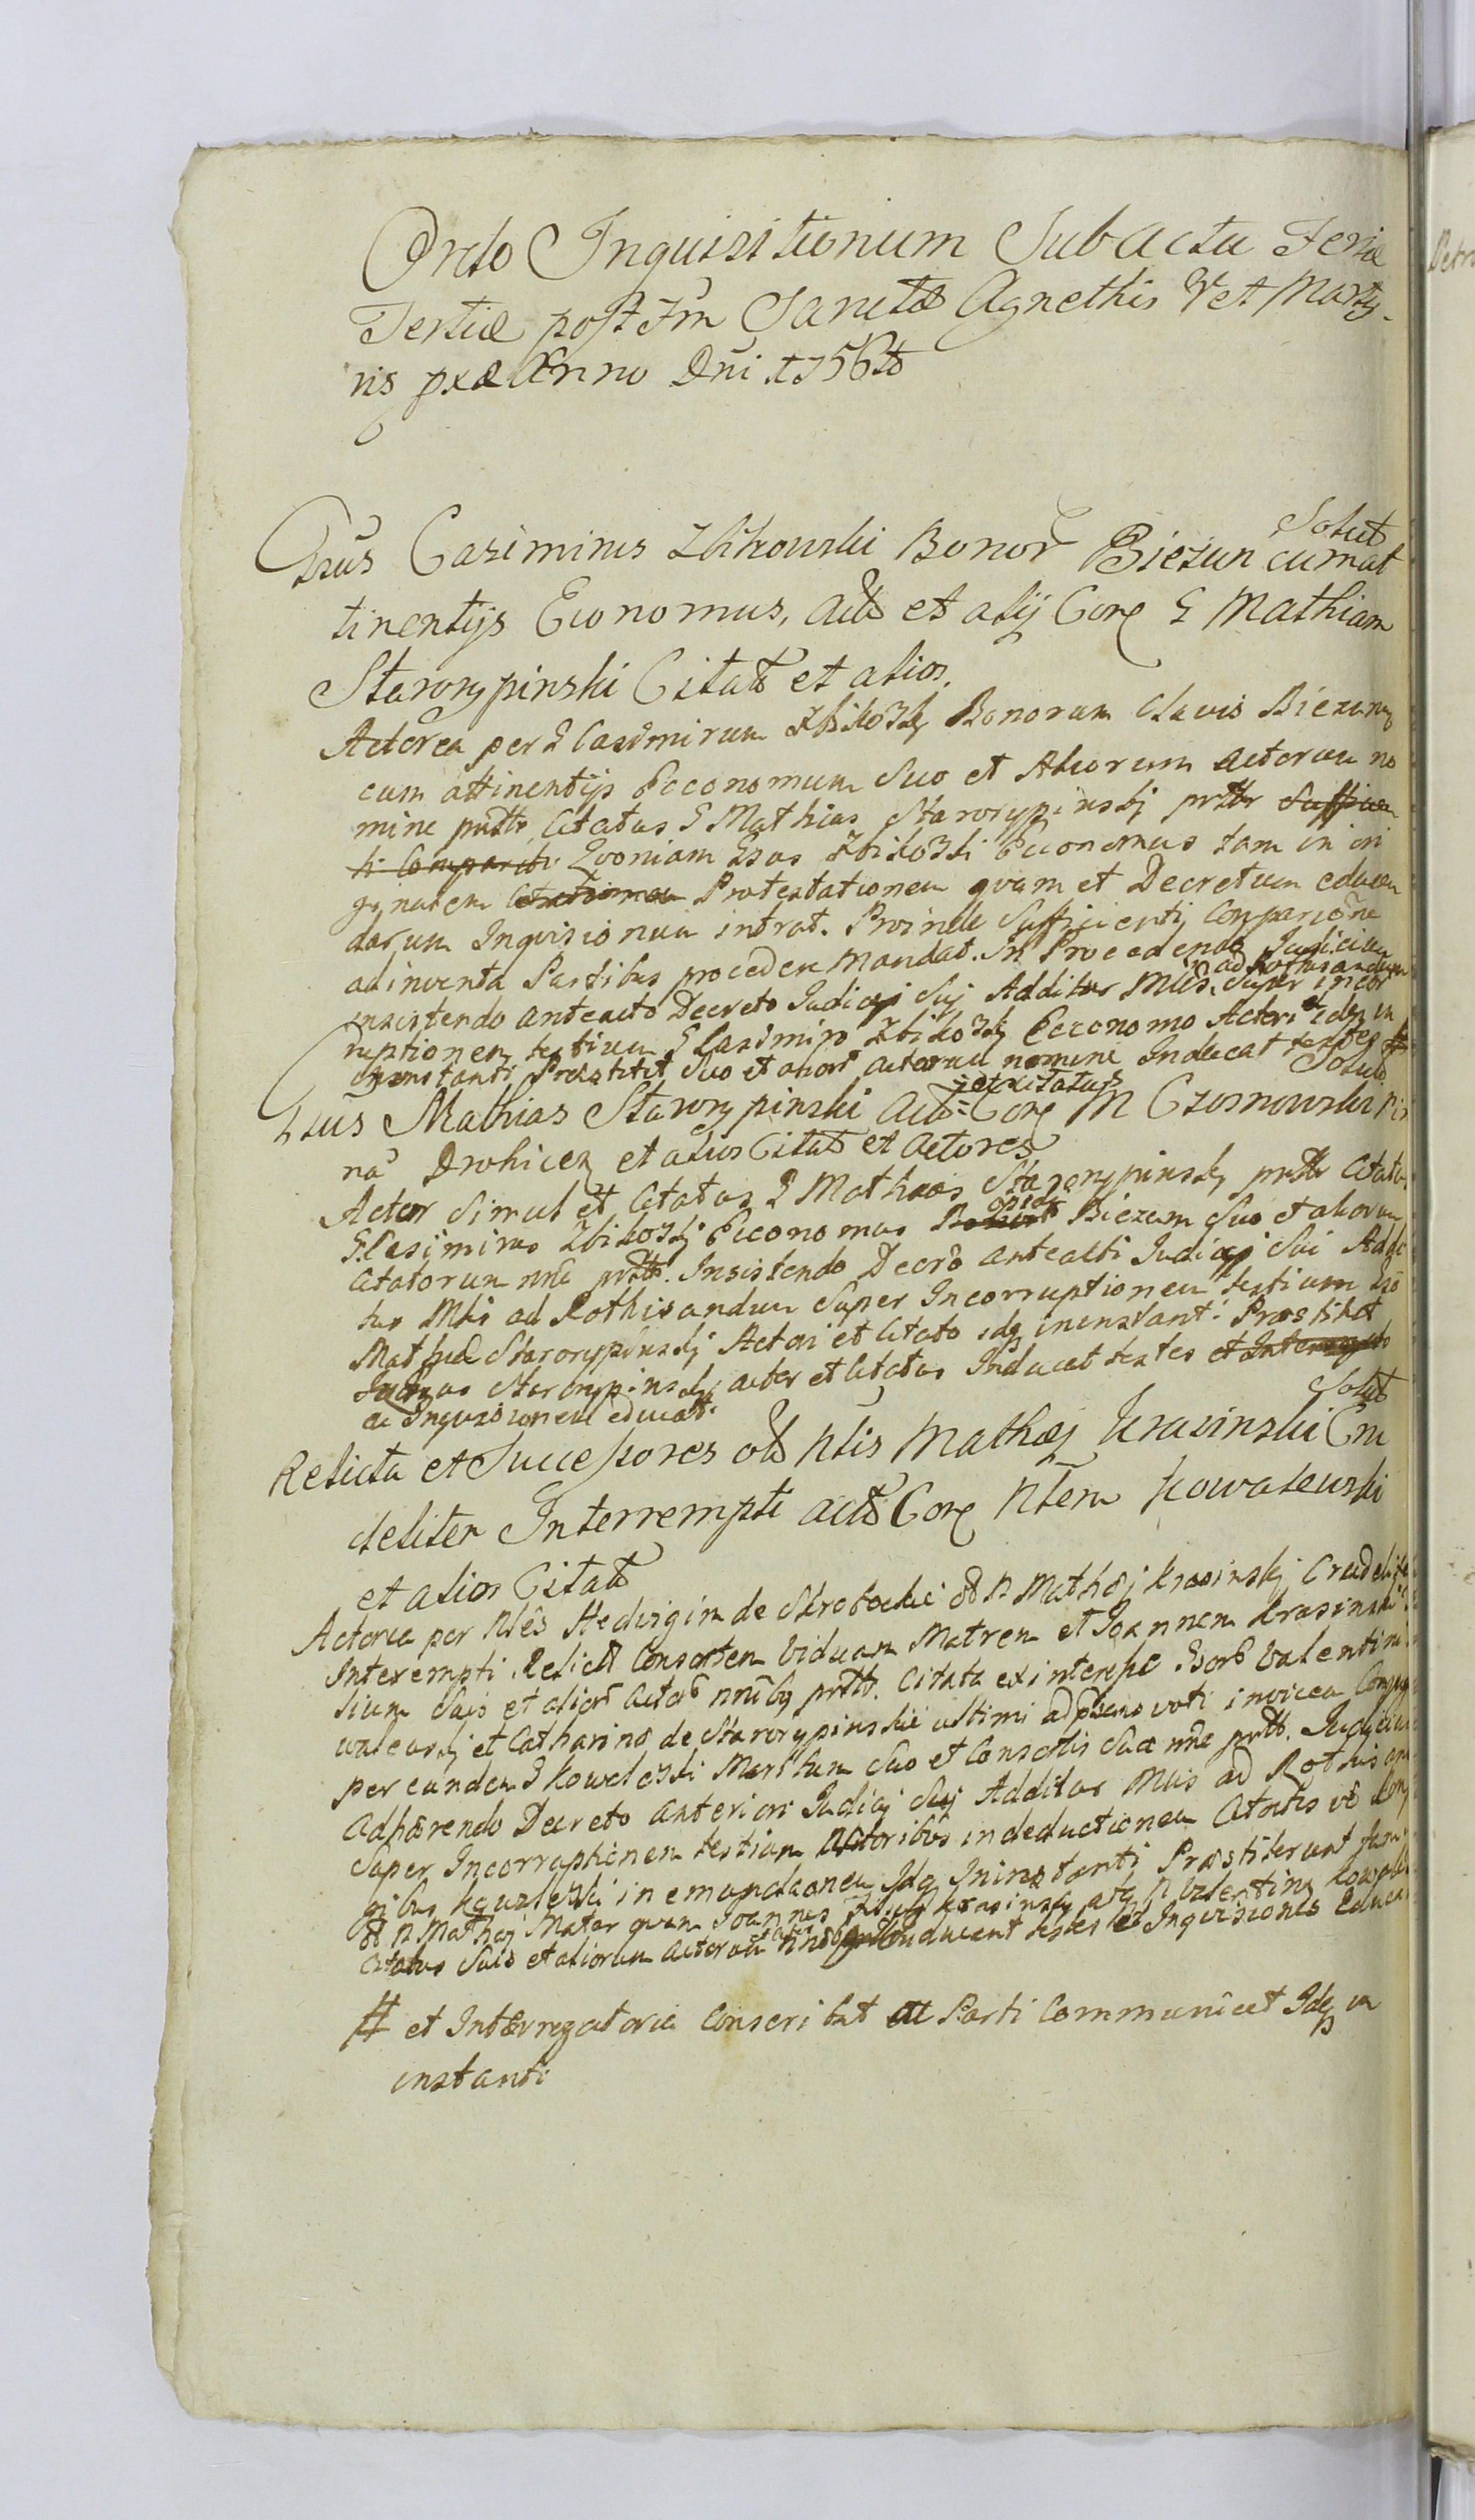 Ordo Inquisitionum Sub actu Feriæ
Tertiæ post Fm Sanctæ Agnethis V et Marty-
ris pxæ Anno Dni 1756to
Solut
Gsus Casimirus Zbikowski Bonor Biezun cum at
tinentijs Economus, act et alij Cong G Mathiam
Starorypinski Citat et alios.
Actorea per G Casimirum Zbikoski Bonorum Clavis Biezun
cum attinentijs Economum Suo et Aliorum actorum no
mine prtte, Citatus G Mathias Starorypinskj prttr
Quoniam Gsus Zbikoski Economus tam in ori
ginalem Protestationem quam et Decretum educen
darum Inquisionum intrat. Proinde Sufficienti Comparitione
adinventa Partibus procedere mandat. In Procedendo Judicium
insistendo anteacto Decreto Judicij Sui Additus Mlis, ad Rothisandum Super incor
ruptionem testium G Casimiro Zbikoski Economo Actori et idq in
instanti Præstitit Suo et alior actorum nomine Inducat testes #
Solut
Gsus Mathias Starorypinski act et citatus Cong M Czosnowski
na Drohicen et alios Citat et Actores
Actor Simul et Citatus G Mathias Starorypinskj prtte Citatus
G Casimirus Zbikoskj Economus opidi Biezum Suo et aliorum
Citatorum nne prtt. Insistendo Decro anteacti Judicij Sui Addi
tus Mlis ad Rothisandum Super Incorruptionem testium Gso
Mathiæ Starorypinskj Actori et Citato idq ininstanti Præstitit
Starorypinskj actor et Citatus Inducat testes
ac Inquisionem educat.
Solut
Relicta et Successores ol Nlis Mathæj Krasinski Cru
deliter Interrempti act Cong Nlem Kowalewski
et alios Citat
Actorea per Nles Hedvigim de ol N Mathæj Krasinskj Crudeliter
Interempti Relict Consortem viduam Matrem et Joannem Krasinski
lium Suis et alior actor nnibq prtt. Citata ex intersse Gsor Valentini
waleoskj et Catharinæ de Starorypinskie ultimi ad præns voti invicem Conjug
per eundem G Kowaleski Maritum Suo et Consortis Suæ nne prtt. Judicium
adhærendo Decreto anteriori Judicij Suj Additus Mlis ad Rothisan
Super Incorruptionem testium Actoribus in deductionem Citatis vo Conj
gibus Kowaleski in emundaonem Idq Ininstanti Præstiterunt tam
ol N Mathæj Mater quam Joannes Filius Krasinskj atq N Valentinus Kowal
Citatus Suis et aliorum actorum et citat nnibq Inducant testes et Inquisiones Educa
# et Interrogatoria Conscribat ac Parti Communicet Idq in
instanti